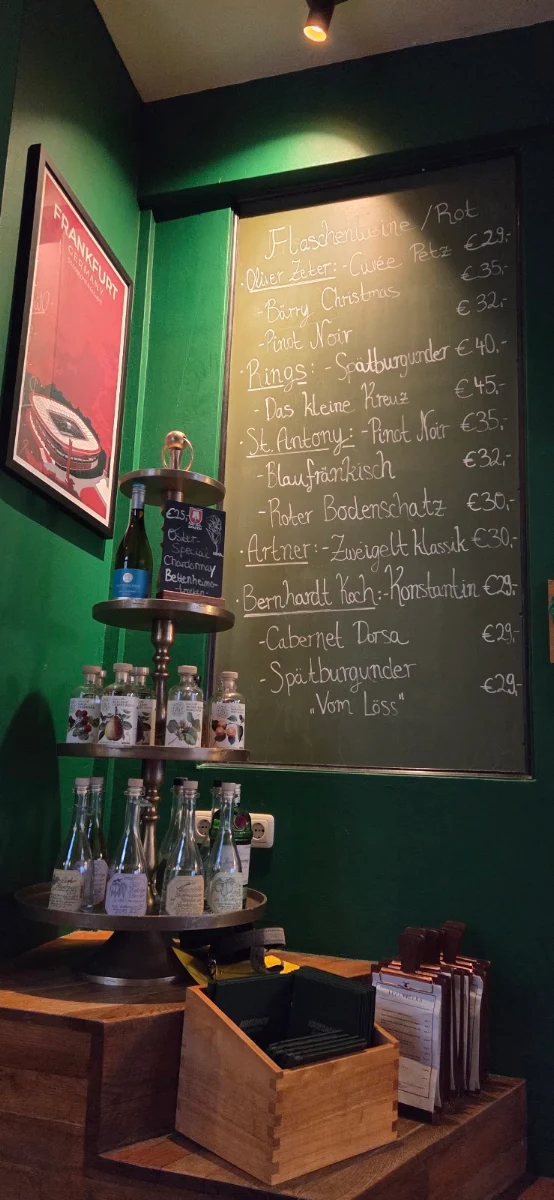 FRANKFURT
GERMANY
Flaschenweine/Rot
Oliver Zeter: -Cuvée Petz €29,-
-Bärry Christmas €35,-
-Pinot Noir €32,-
Rings: -Spätburgunder €40,-
-Das kleine Kreuz €45,-
St. Antony: -Pinot Noir €35,-
-Blaufränkisch €32,-
-Roter Bodenschatz €30,-
Artner: -Zweigelt klassik €30,-
Bernhardt Koch: -Konstantin €29,-
-Cabernet Dorsa €29,-
-Spätburgunder €29,-
„Vom Löss"
€25,-
Oster
Special
Chardonnay
Bettenheimer
- trocken -